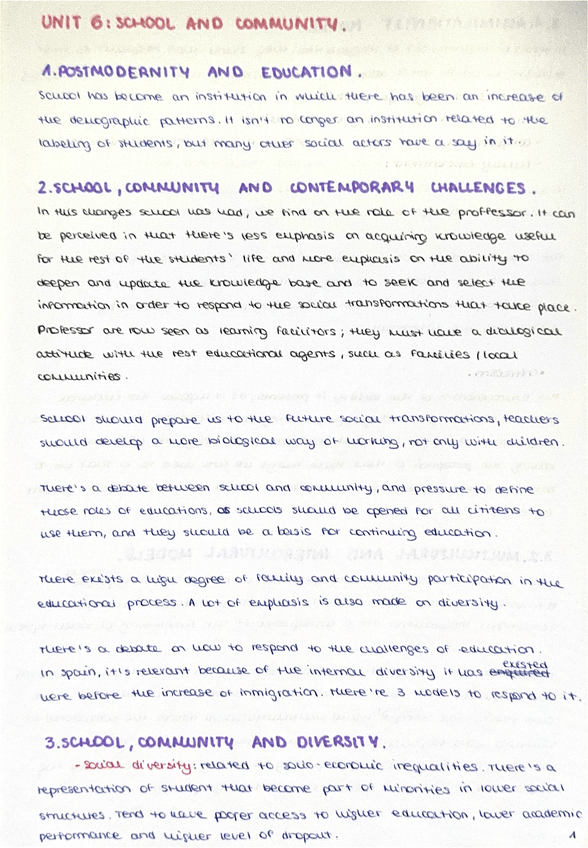 UNIT 6: SCHOOL AND COMMUNITY.
1. POSTMODERNITY AND EDUCATION.
School has become an institution in which there has been an increase of
the demographic patterns. It isn't no longer an institution related to the
labeling of students, but many other social actors have a say in it.
2. SCHOOL, COMMUNITY AND CONTEMPORARY CHALLENGES.
In this changes school has had, we find on the role of the proffessor. It can
be perceived in that there's less emphasis on acquiring knowledge useful
for the rest of the students' life and more emphasis on the ability to
deepen and update the knowledge base and to seek and select the
information in order to respond to the social transformations that take place.
Professor are now seen as learning facilitors; they must have a dialogical
attitude with the rest educational agents, such as families / local
communities.
School should prepare us to the future social transformations, teachers
should develop a more biological way of working, not only with children.
There's a debate between school and community, and pressure to define
those roles of educations, as schools should be opened for all citizens to
use them, and they should be a basis for continuing education.
There exists a high degree of family and community participation in the
educational process. A lot of emphasis is also made on diversity.
There's a debate on how to respond to the challenges of education.
In Spain, it's relevant because of the internal diversity it has existed
here before the increase of inmigration. There're 3 models to respond to it.
3. SCHOOL, COMMUNITY AND DIVERSITY.
- Social diversity: related to socio-economic inequalities. There's a
representation of student that become part of minorities in lower social
structures. Tend to have poorer access to higher education, lower academic
performance and higher level of dropout.
1